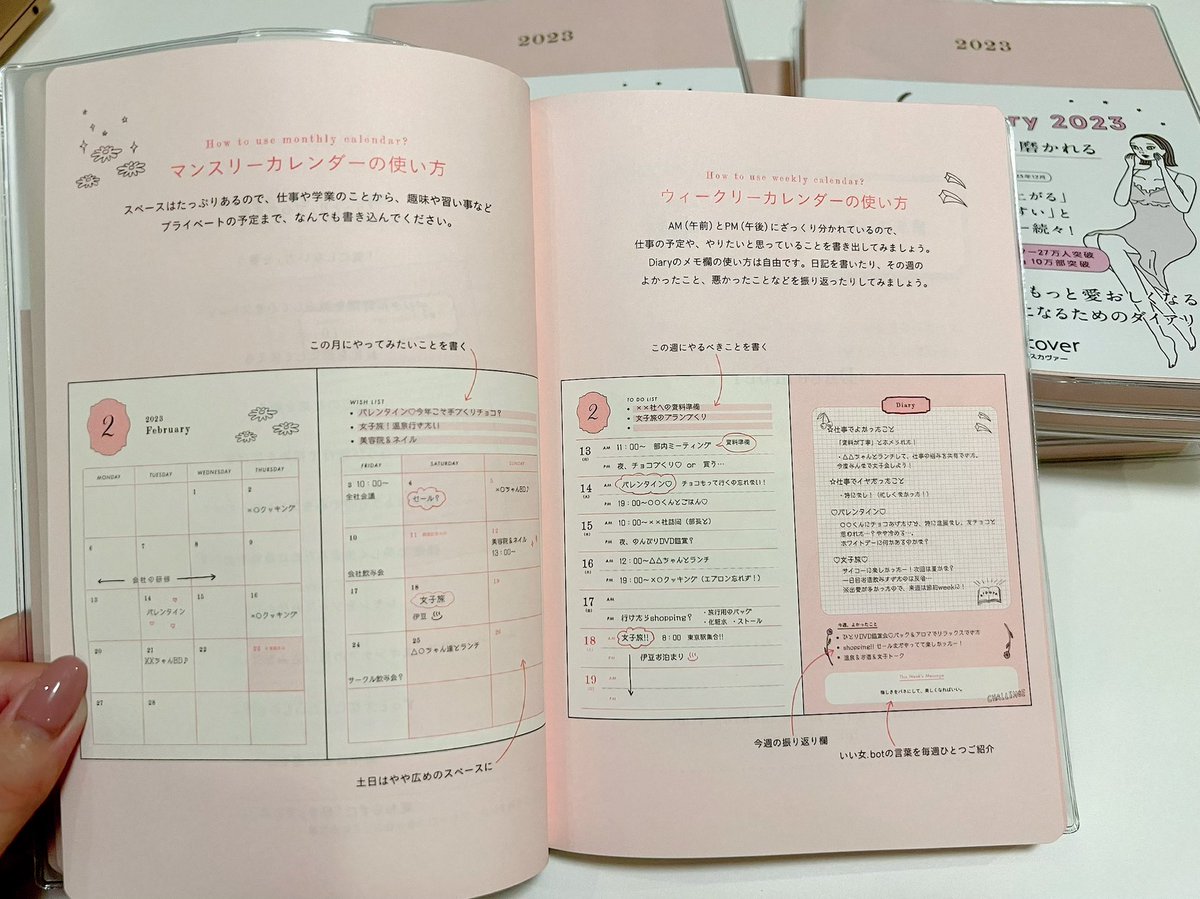 2023
2023
How to use monthly calendar?
マンスリーカレンダーの使い方
スペースはたっぷりあるので、仕事や学業のことから、趣味や習い事など
プライベートの予定まで、なんでも書き込んでください。
この月にやってみたいことを書く
2
2023
February
WISH LIST
• バレンタイン♡今年こそ手づくりチョコ?
• 女子旅!温泉行きたい
• 美容院&ネイル
MONDAY TUESDAY WEDNESDAY THURSDAY FRIDAY SATURDAY SUNDAY
1 2 3 10:00〜 4 5
×○クッキング 全社会議 セール? ○ちゃんBD♪
6 7 8 9 10 11 12
美容院&ネイル
13:00〜
会社の研修 会社飲み会
13 14 15 16 17 18
バレンタイン ×○クッキング 女子旅
伊豆
20 21 22 23 24 25 26
××ちゃんBD♪ サークル飲み会? △○ちゃん達とランチ
27 28
土日はやや広めのスペースに
How to use weekly calendar?
ウィークリーカレンダーの使い方
AM(午前)とPM(午後)にざっくり分かれているので、
仕事の予定や、やりたいと思っていることを書き出してみましょう。
Diaryのメモ欄の使い方は自由です。日記を書いたり、その週の
よかったこと、悪かったことなどを振り返ったりしてみましょう。
この週にやるべきことを書く
2
TO DO LIST
• ××社への資料準備
• 女子旅のプランづくり
13 AM 11:00〜 部内ミーティング 資料準備
PM 夜、チョコづくり♡ or 買う…
14 AM バレンタイン♡ チョコもって行くの忘れない!
PM 19:00〜○○くんとごはん♡
15 AM 10:00〜××社訪問(部長と)
PM 夜、のんびりDVD鑑賞?
16 AM 12:00〜△△ちゃんとランチ
PM 19:00〜×○クッキング(エプロン忘れず!)
17 AM
PM 行けたらshopping? ・旅行用のバッグ
・化粧水 ・ストール
18 AM 女子旅!! 8:00 東京駅集合!!
PM 伊豆お泊まり
19 AM
PM
Diary
☆仕事でよかったこと
「資料が丁寧」とホメられた!
・△△ちゃんとランチして、仕事の悩みを共有できた。
今度みんなで女子会しよう!
☆仕事でイヤだったこと
・特になし!(忙しくなかった!)
♡バレンタイン♡
○○くんにチョコあげたけど、特に進展なし。友チョコと
思われたー?やや冷める…。
ホワイトデーに何かあるのかな?
♡女子旅♡
サイコーに楽しかったー!次回は夏かな?
一日目お酒飲みすぎたのは反省…
が多かったので、来週は節約weekに!
今週、よかったこと
• ひとりDVD鑑賞会♡パック&アロマでリラックスできた
• shopping!!セールまだやってて楽しかったー!
• 温泉&お酒&女子トーク
This Week's Message
悔しさをバネにして、美しくなればいい。
CHALLENGE
今週の振り返り欄
いい女.botの言葉を毎週ひとつご紹介
2023
磨かれる
27万人突破
10万部突破
もっと愛おしくなる
になるためのダイアリ
cover
スカヴァー